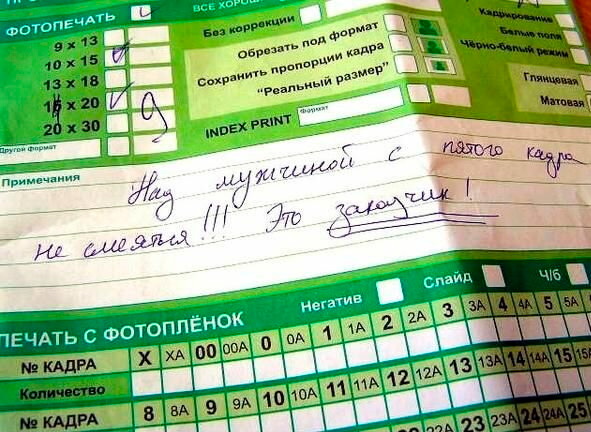 ВСЕ ХОРОШ
ФОТОПЕЧАТЬ
9 x 13
10 x 15
13 x 18
x 20 9
20 x 30
Другой формат
Без коррекции
Обрезать под формат
Сохранить пропорции кадра
"Реальный размер"
INDEX PRINT Формат
Кадрирование
Белые поля
Чёрно-белый режим
Глянцевая
Матовая
Примечания
Над мужчиной с пятого кадра
не смеяться!!! Это заказчик!
Негатив Слайд Ч/б
ПЕЧАТЬ С ФОТОПЛЁНОК
№ КАДРА X XA 00 00A 0 0A 1 1A 2 2A 3 3A 4 4A 5 5A
Количество
№ КАДРА 8 8A 9 9A 10 10A 11 11A 12 12A 13 13A 14 14A 15 15A
22 22A 23 23A 24 24A 25